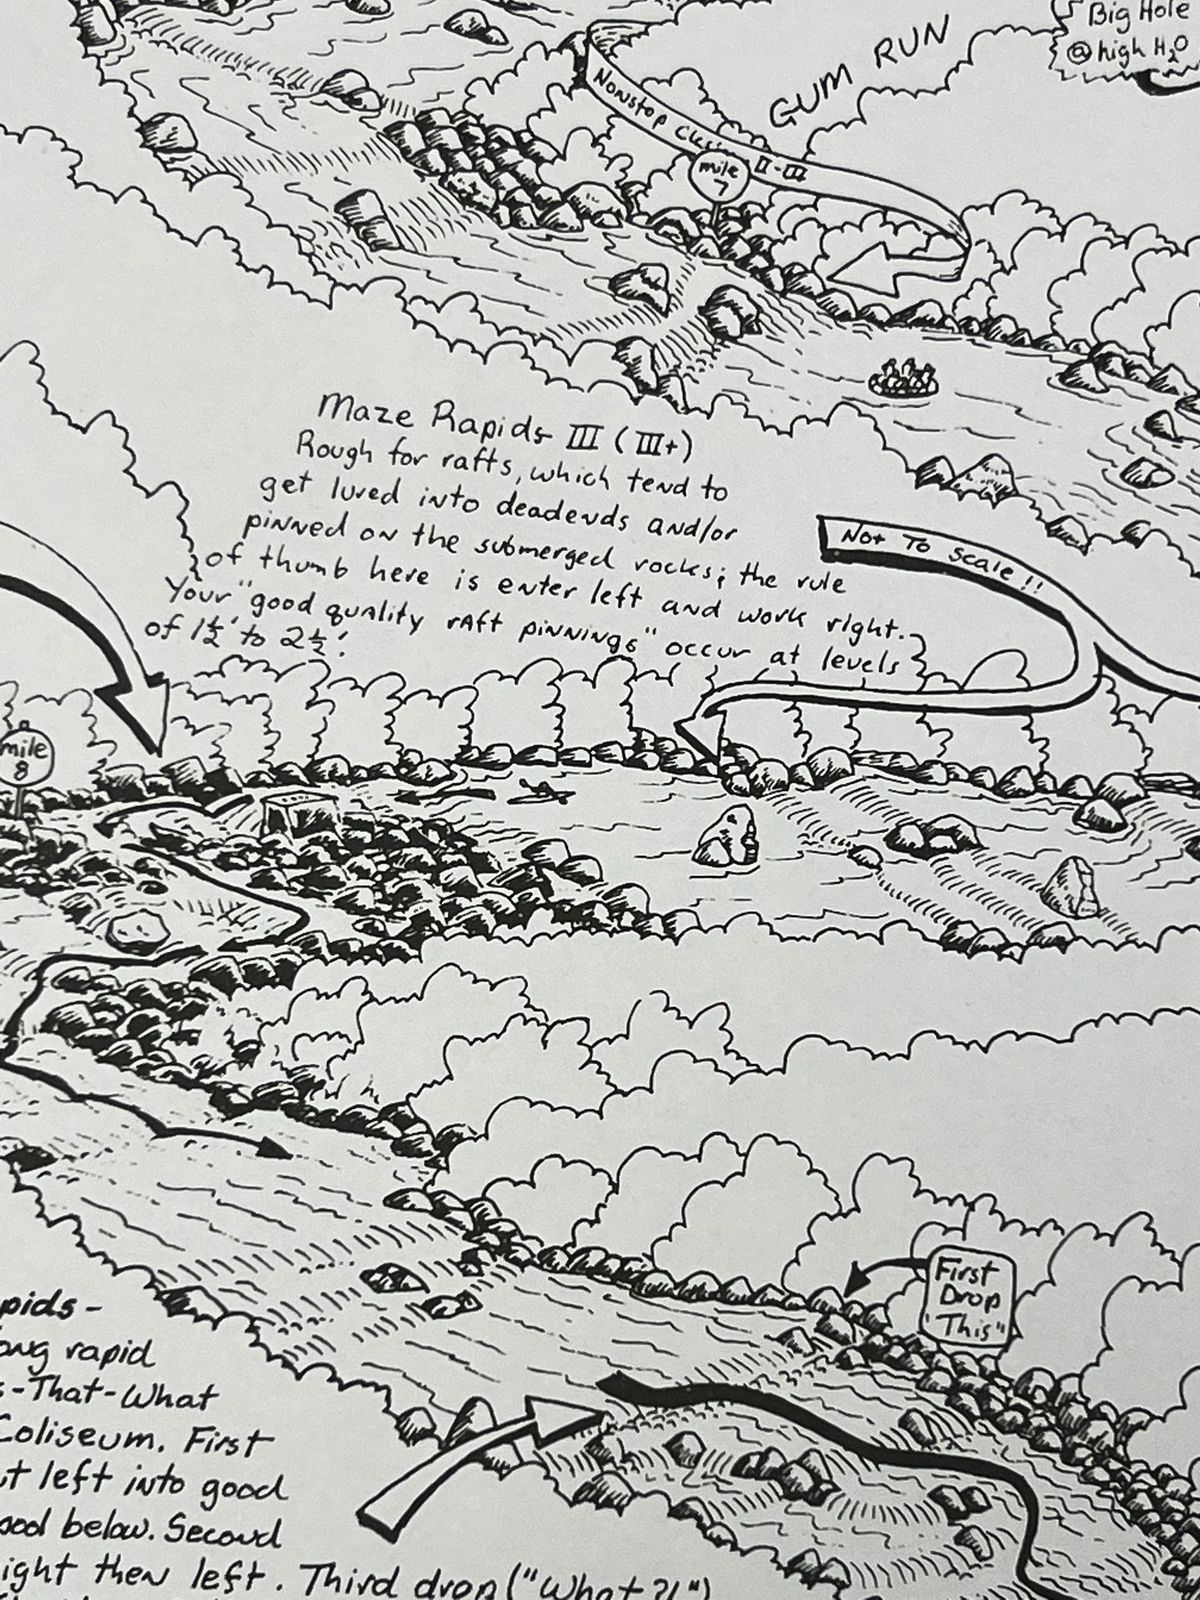 Big Hole
@ high H₂O
GUM RUN
Nonstop Class II-III
mile
7
Maze Rapids III (III+)
Rough for rafts, which tend to
get lured into deadends and/or
pinned on the submerged rocks; the rule
of thumb here is enter left and work right.
Your "good quality raft pinnings" occur at levels
of 1½' to 2½'.
Not To Scale!!
mile
8
First
Drop
"This"
pids-
ong rapid
s-That-What
Coliseum. First
t left into good
pool below. Second
ight then left. Third drop ("What?!")